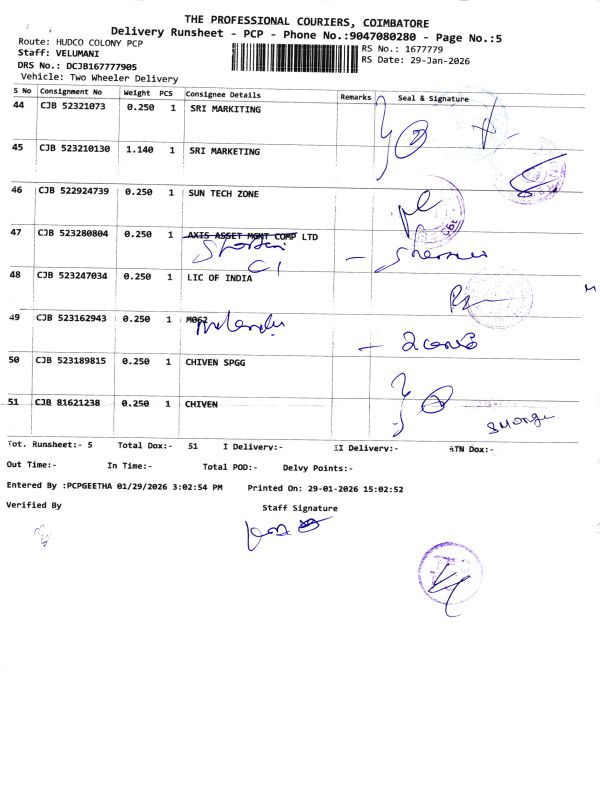 THE PROFESSIONAL COURIERS, COIMBATORE
Delivery Runsheet - PCP - Phone No.:9047080280 - Page No.:5
Route: HUDCO COLONY PCP
RS No.: 1677779
Staff: VELUMANI
RS Date: 29-Jan-2026
DRS No.: DCJB167777905
Vehicle: Two Wheeler Delivery
S No Consignment No Weight PCS Consignee Details Remarks Seal & Signature
44 CJB 52321073 0.250 1 SRI MARKITING
45 CJB 523210130 1.140 1 SRI MARKETING
46 CJB 522924739 0.250 1 SUN TECH ZONE
47 CJB 523280804 0.250 1 AXIS ASSET MGMT COMP LTD
48 CJB 523247034 0.250 1 LIC OF INDIA
49 CJB 523162943 0.250 1 M062
50 CJB 523189815 0.250 1 CHIVEN SPGG
51 CJB 81621238 0.250 1 CHIVEN
Tot. Runsheet:- 5 Total Dox:- 51 I Delivery:- II Delivery:- RTN Dox:-
Out Time:- In Time:- Total POD:- Delvy Points:-
Entered By :PCPGEETHA 01/29/2026 3:02:54 PM Printed On: 29-01-2026 15:02:52
Verified By Staff Signature